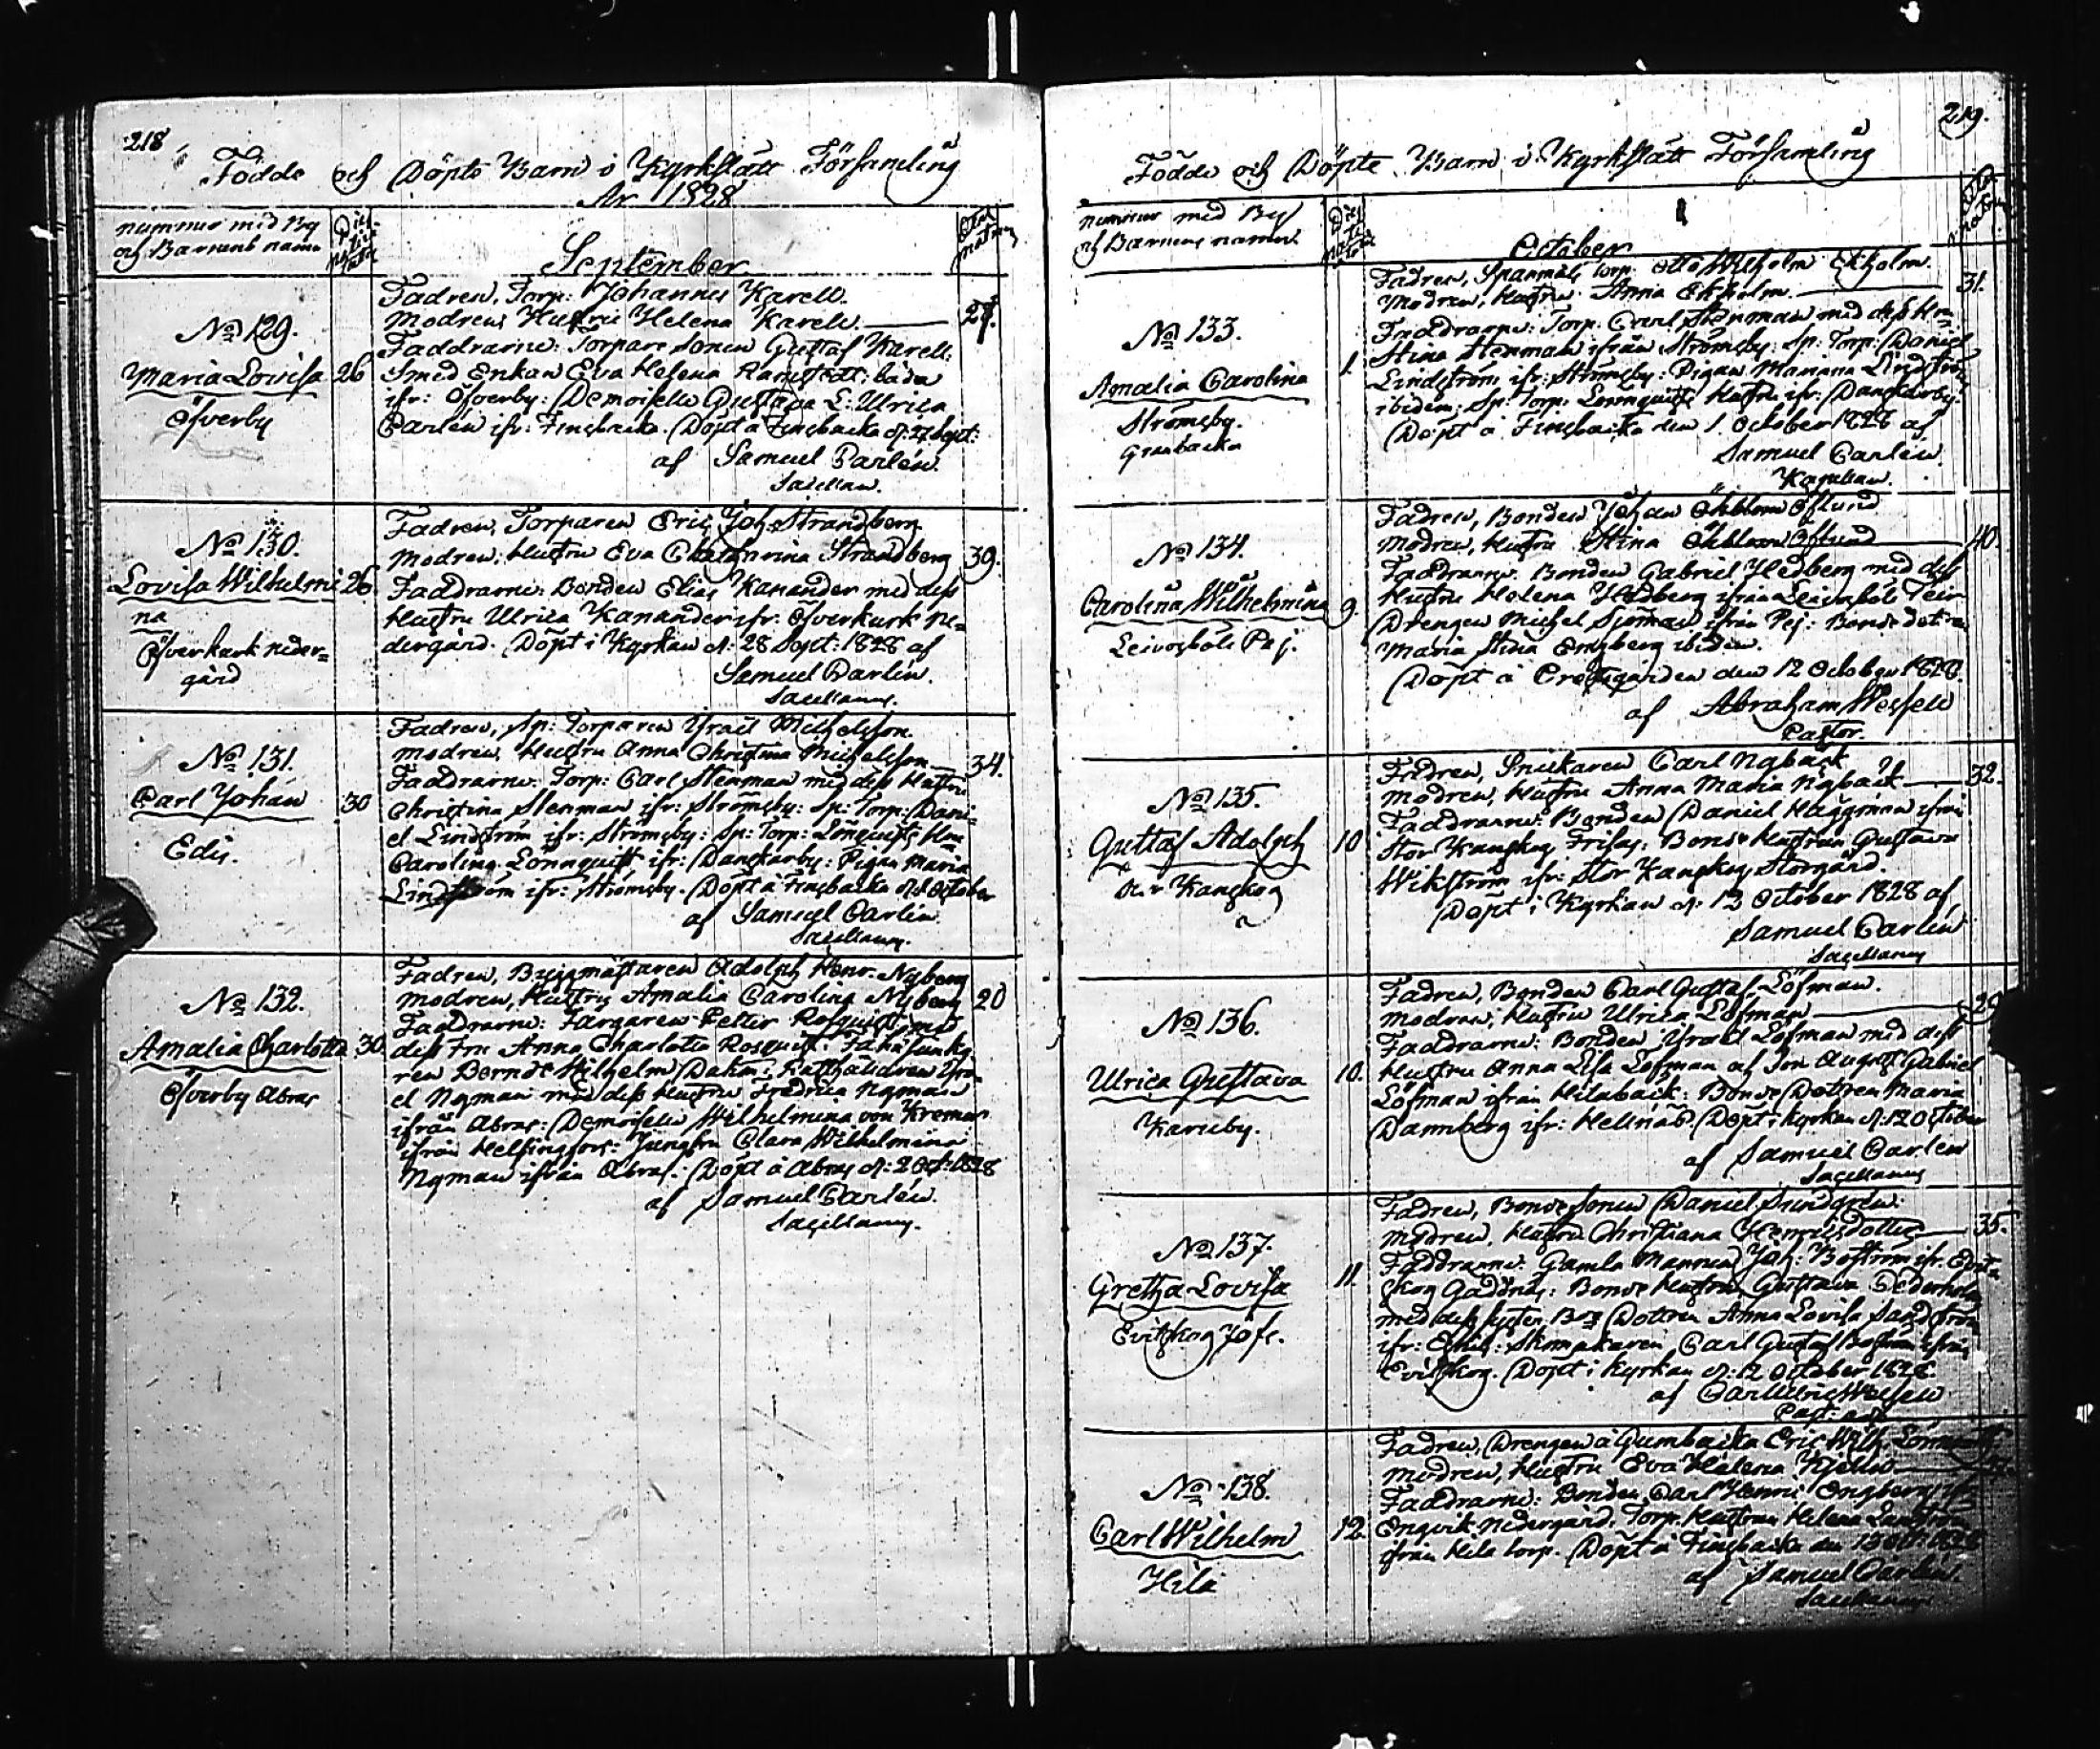 218
Födde och Döpte Barn i Kyrkslätt Församling
År 1828
nummer med By
och Barnens namn
Dies
nati
September
Ætat
matrum
No 129.
Maria Lovisa
Öfverby
26
Fadren, Torp: Johannes Karell.
Modren, Hustru Helena Karell.
27.
Faddrarne: Torpare Sonen Gustaf Karell:
Smed Enkan Eva Helena Ramstedt: båda
ifr: Öfverby: Demoiselle Gustava L: Ulrica
Carlén ifr: Finsbacka. Döpt å Finsbacka d: 27 Sept:
af Samuel Carlén.
Sacellan.
No 130.
Lovisa Wilhelmi
na
Öfverkurk neder=
gård
26
Fadren, Torparen Eric Joh: Strandberg
Modren: Hustru Eva Chatharina Strandberg
39.
Faddrarne: Bonden Elias Kanander med dess
Hustru Ulrica Kanander ifr: Öfverkurk Ne=
dergård. Döpt i Kyrkan d: 28 Sept: 1828 af
Samuel Carlén.
Sacellanus.
No 131.
Carl Johan
Edis.
30
Fadren, Sp: Torparen Israel Michelsson.
Modren, Hustru Anna Christina Michelsson
34.
Faddrarne: Torp: Carl Stenman med dess Hustru
Christina Stenman ifr: Strömsby: Sp: Torp: Dani=
el Lindström ifr: Strömsby: Sp: Torp: Lönquists Hu=
Carolina Lönnquist ifr: Danskarby: Pigan Maria
Lindström ifr: Strömsby. Döpt å Finsbacka d: 1 October
af Samuel Carlén.
Sacellanus.
No 132.
Amalia Charlotta
Öfverby Abras
30.
Fadren, Byggmästaren Adolph Henr. Nyberg
Modren, Hustru Amalia Carolina Nyberg
20
Faddrarne: Färgaren Petter Rosquist med
dess Fru Anna Charlotta Rosquist
ren Berndt Wilhelm Dahm: Ratthållaren Isra=
el Nyman med dess Hustru Fredrica Nyman
ifrån Abras: Demoiselle Wilhelmina von Kremer
ifrån Helsingfors: Jungfru Clara Wilhelmina
Nyman ifrån Abras: Döpt å Abras d: 2 Oct: 1828
af Samuel Carlén.
Sacellanus.
219.
Födde och Döpte Barn i Kyrkslätt Församling
nummer med By
och Barnens namn
Dies
nati
October
No 133.
Amalia Carolina
Strömsby.
Granbacka
1.
Fadren, Spanmåls Torp: Otto Wilhelm Ekholm.
Modren, Hustru Anna Ekholm.
31.
Faddrarne: Torp: Carl Stenman med dess Hu=
Stina Stenman ifrån Strömsby: Sp: Torp: Daniel
Lindström ifr: Strömsby: Pigan Mariana Lindström
ibidem: Sp: Torp: Lönnquists Hustru ifr: Danskarby.
Döpt å Finsbacka den 1. October 1828 af
Samuel Carlén.
Kapellan.
No 134.
Carolina Wilhelmina
Leivosböle Pej.
9.
Fadren, Bonden Johan Öhblom Öflund
Modren, Hustru Stina Öhblom Öflund
40.
Faddrarne: Bonden Gabriel Hedberg med dess
Hustru Helena Hedberg ifrån Leivosböle
Drengen Michel Sjöman ifrån Pej: Bonde dottren
Maria Stina Engberg ibidem.
Döpt å Prestgården den 12 October 1828.
af Abraham Wesselu
Pastor.
No 135.
Gustaf Adolph
10
Fadren, Snickaren Carl Nyback
Modren, Hustru Anna Maria Nyback
32.
Faddrarne: Bonden Daniel Häggman ifrån
Stor Kanskog Frisas: Bonde Hustrun Gustava
Wikström ifr: Stor Kanskog Storgård.
Döpt i Kyrkan d: 12 October 1828 af
Samuel Carlén
Sacellanus
No 136.
Ulrica Gustava
Karuby.
10.
Fadren, Bonden Carl Gustaf Löfman.
Modren, Hustru Ulrica Löfman
Faddrarne: Bonden Israel Löfman med dess
Hustru Anna Lisa Löfman och Son August Gabriel
Löfman ifrån Hilaback: Bonde Dottren Maria
Dannberg ifr: Döpt i Kyrkan d: 12 October
af Samuel Carlén
Sacellanus
No 137.
Gretha Lovisa
Evitskog
11.
Fadren, Bonde Sonen Daniel Sundgren:
Modren, Hustru Christiana Henricsdotter
35.
Faddrarne: Gamla Mannen Joh: Boström ifr: Evits=
kog Gaddnäs: Bonde Hustrun Gustava Cederholm
med dess Syster Bon Dottren Anna Lovisa Sandström
ifr: Skomakaren Carl Gustaf Boström ifrån
Evitskog. Döpt i Kyrkan d: 12 October 1828.
af
No 138.
Carl Wilhelm
Hila
12.
Fadren, Drengen å Gumbacka Eric Wilh:
Modren, Hustru Eva Helena
Faddrarne: Bonden Carl Henric Engberg ifr:
Engvik Nedergård. Torp. Hustrun Helena
ifrån Hila torp. Döpt å Finsbacka den 13 Oct: 1828
af Samuel Carlén.
Sacellanus